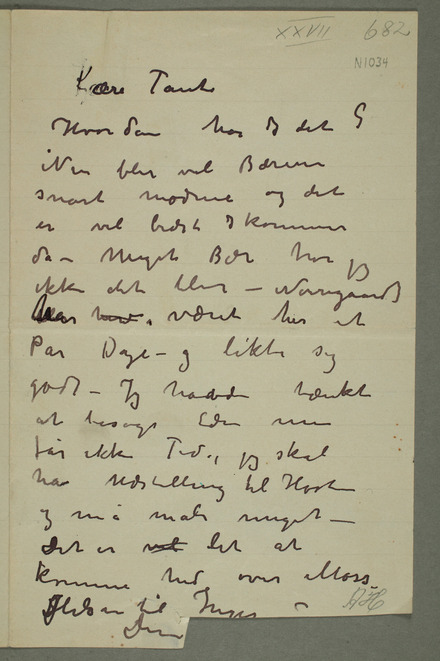 XXVII 682
N1034
Kære Tante
Hvordan har I det ?
Nu blir vel Bærene
snart modne og det
er vel bedst I kommer
da – Meget Bær har jeg
ikke det blir – Nørregaard
har været her et
Par Dage – og likte sig
godt – Jeg havde tænkt
at besøge Eder men
får ikke Tid, jeg skal
ha Udstilling til Høsten
og må male meget –
Det er vel let at
komme hid over Moss –
Hilsen til Inger –
Din